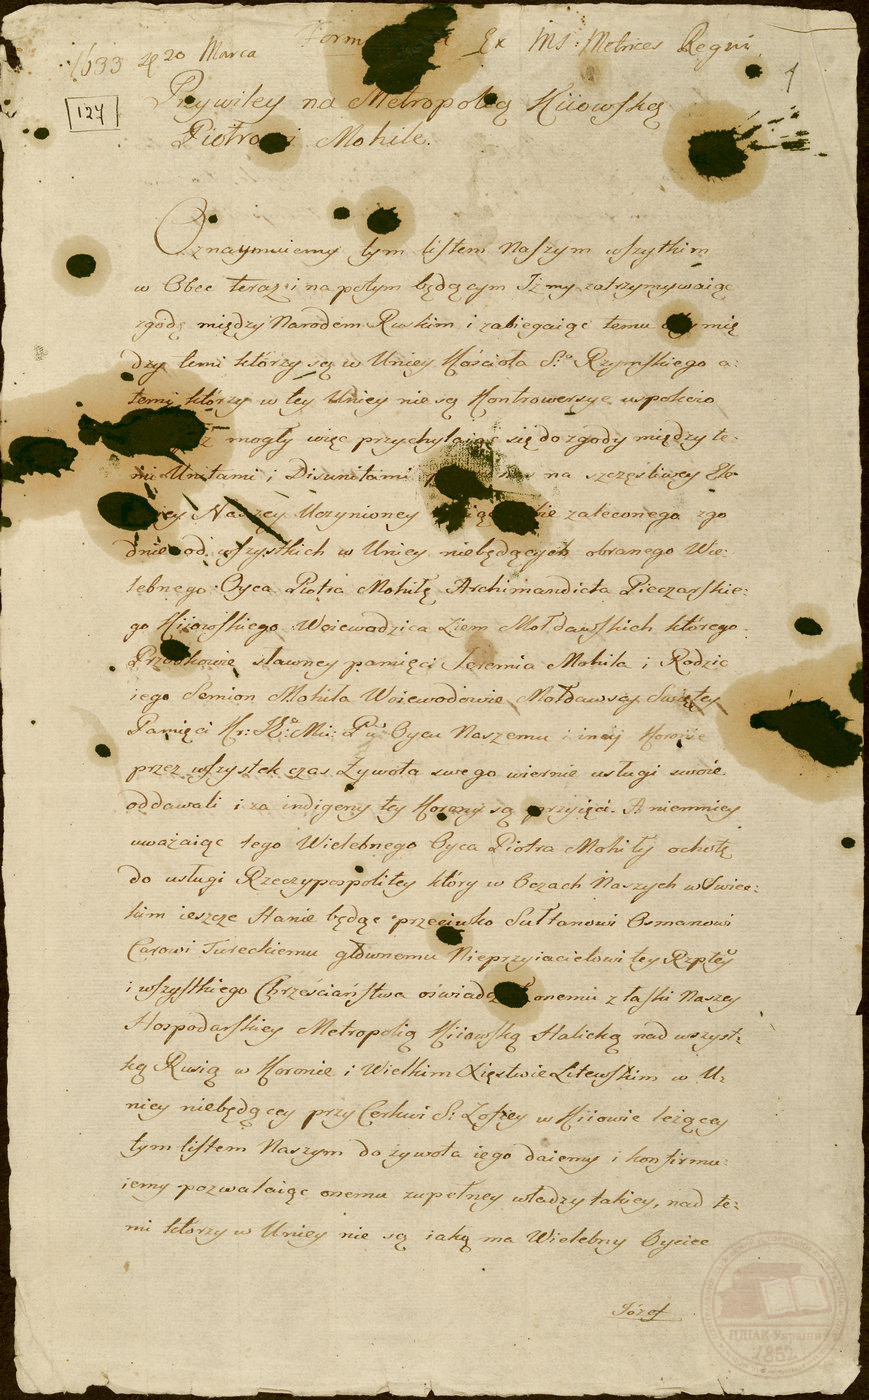 1633 20 Marca Ex MS: Metrices Regni
1
127
Przywiley na Metropolią Kiiowską
Piotrowi Mohile.
Oznaymuiemy tym listem Naszym wszytkim
w Obec teraz i na potym będącym Iż my zatrzymywaiąc
zgodę między Narodem Ruskim i zabiegaiąc temu aby mię
dzy temi którzy są w Uniey Kościoła S.o Rzymskiego a
temi którzy w tey Uniey nie są Kontrowersye uspokoio
mogły więc przychylaiąc się do zgody między te:
mi Unitami i Disunitami na szczęśliwey Ele
Naszey Uczynioney zaleconego zgo
dnie od wszystkich w Uniey niebędących obranego Wie:
lebnego Oyca Piotra Mohiłę Archimandrita Pieczarskie:
go Kiiowskiego Woiewodzica Ziem Mołdawskich którego
Przodkowie sławney pamięci Ieremia Mohila i Rodzic
iego Semion Mohila Woiewodowie Mołdawscy Swiętey
Pamięci Kr: K:o Mci: Pu Oycu Naszemu i tey Koronie
przez wszystek czas Zywota swego wiernie usługi swoie
oddawali i za indigeny tey Korony są przyięci. A niemniey
uważaiąc tego Wielebnego Oyca Piotra Mohiły ochotę
do usługi Rzeczypospolitey który w Oczach Naszych w Swiec:
kim ieszcze stanie będąc przeciwko Sułtanowi Osmanowi
Carowi Tureckiemu głównemu Nieprzyiacielowi tey Rzptey
i wszystkiego Chrześciaństwa oświadcz onemu z łaski Naszey
Hospodarskiey Metropolią Kiiowską Halicką nad wszyst:
ką Rusią w Koronie i Wielkim Xięstwie Litewskim w U:
niey niebędącey przy Cerkwi S: Zofiey w Kiiowie leżącey
tym listem Naszym do zywota iego daiemy i konfirmu:
iemy pozwalaiąc onemu zupełney władzy takiey, nad te:
mi którzy w Uniey nie są iaką ma Wielebny Oyciec
Józef
ЦДІАК України
1852